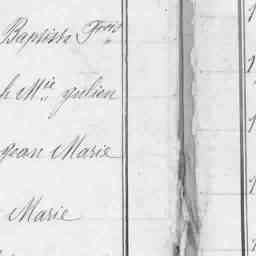 Baptiste Frois
h Mie Julien
jean Marie
Marie